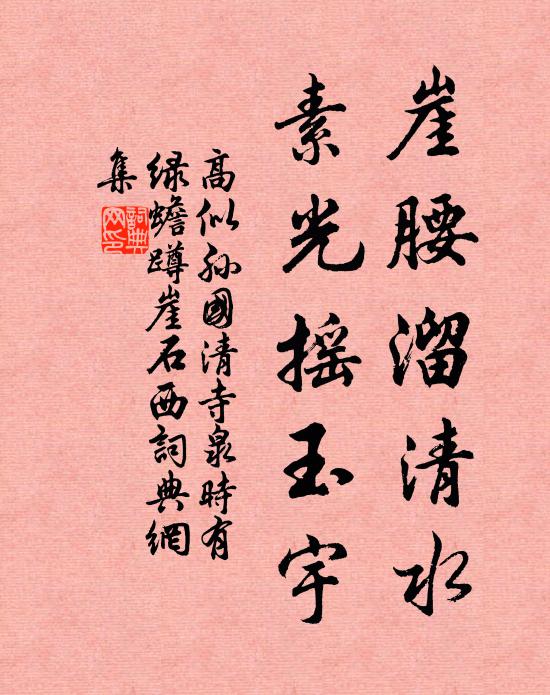 崖腰溜清水
素光摇玉宇
高似孙國清寺泉時有
绿蟾蹲崖石西詞典網
集
詞典网印